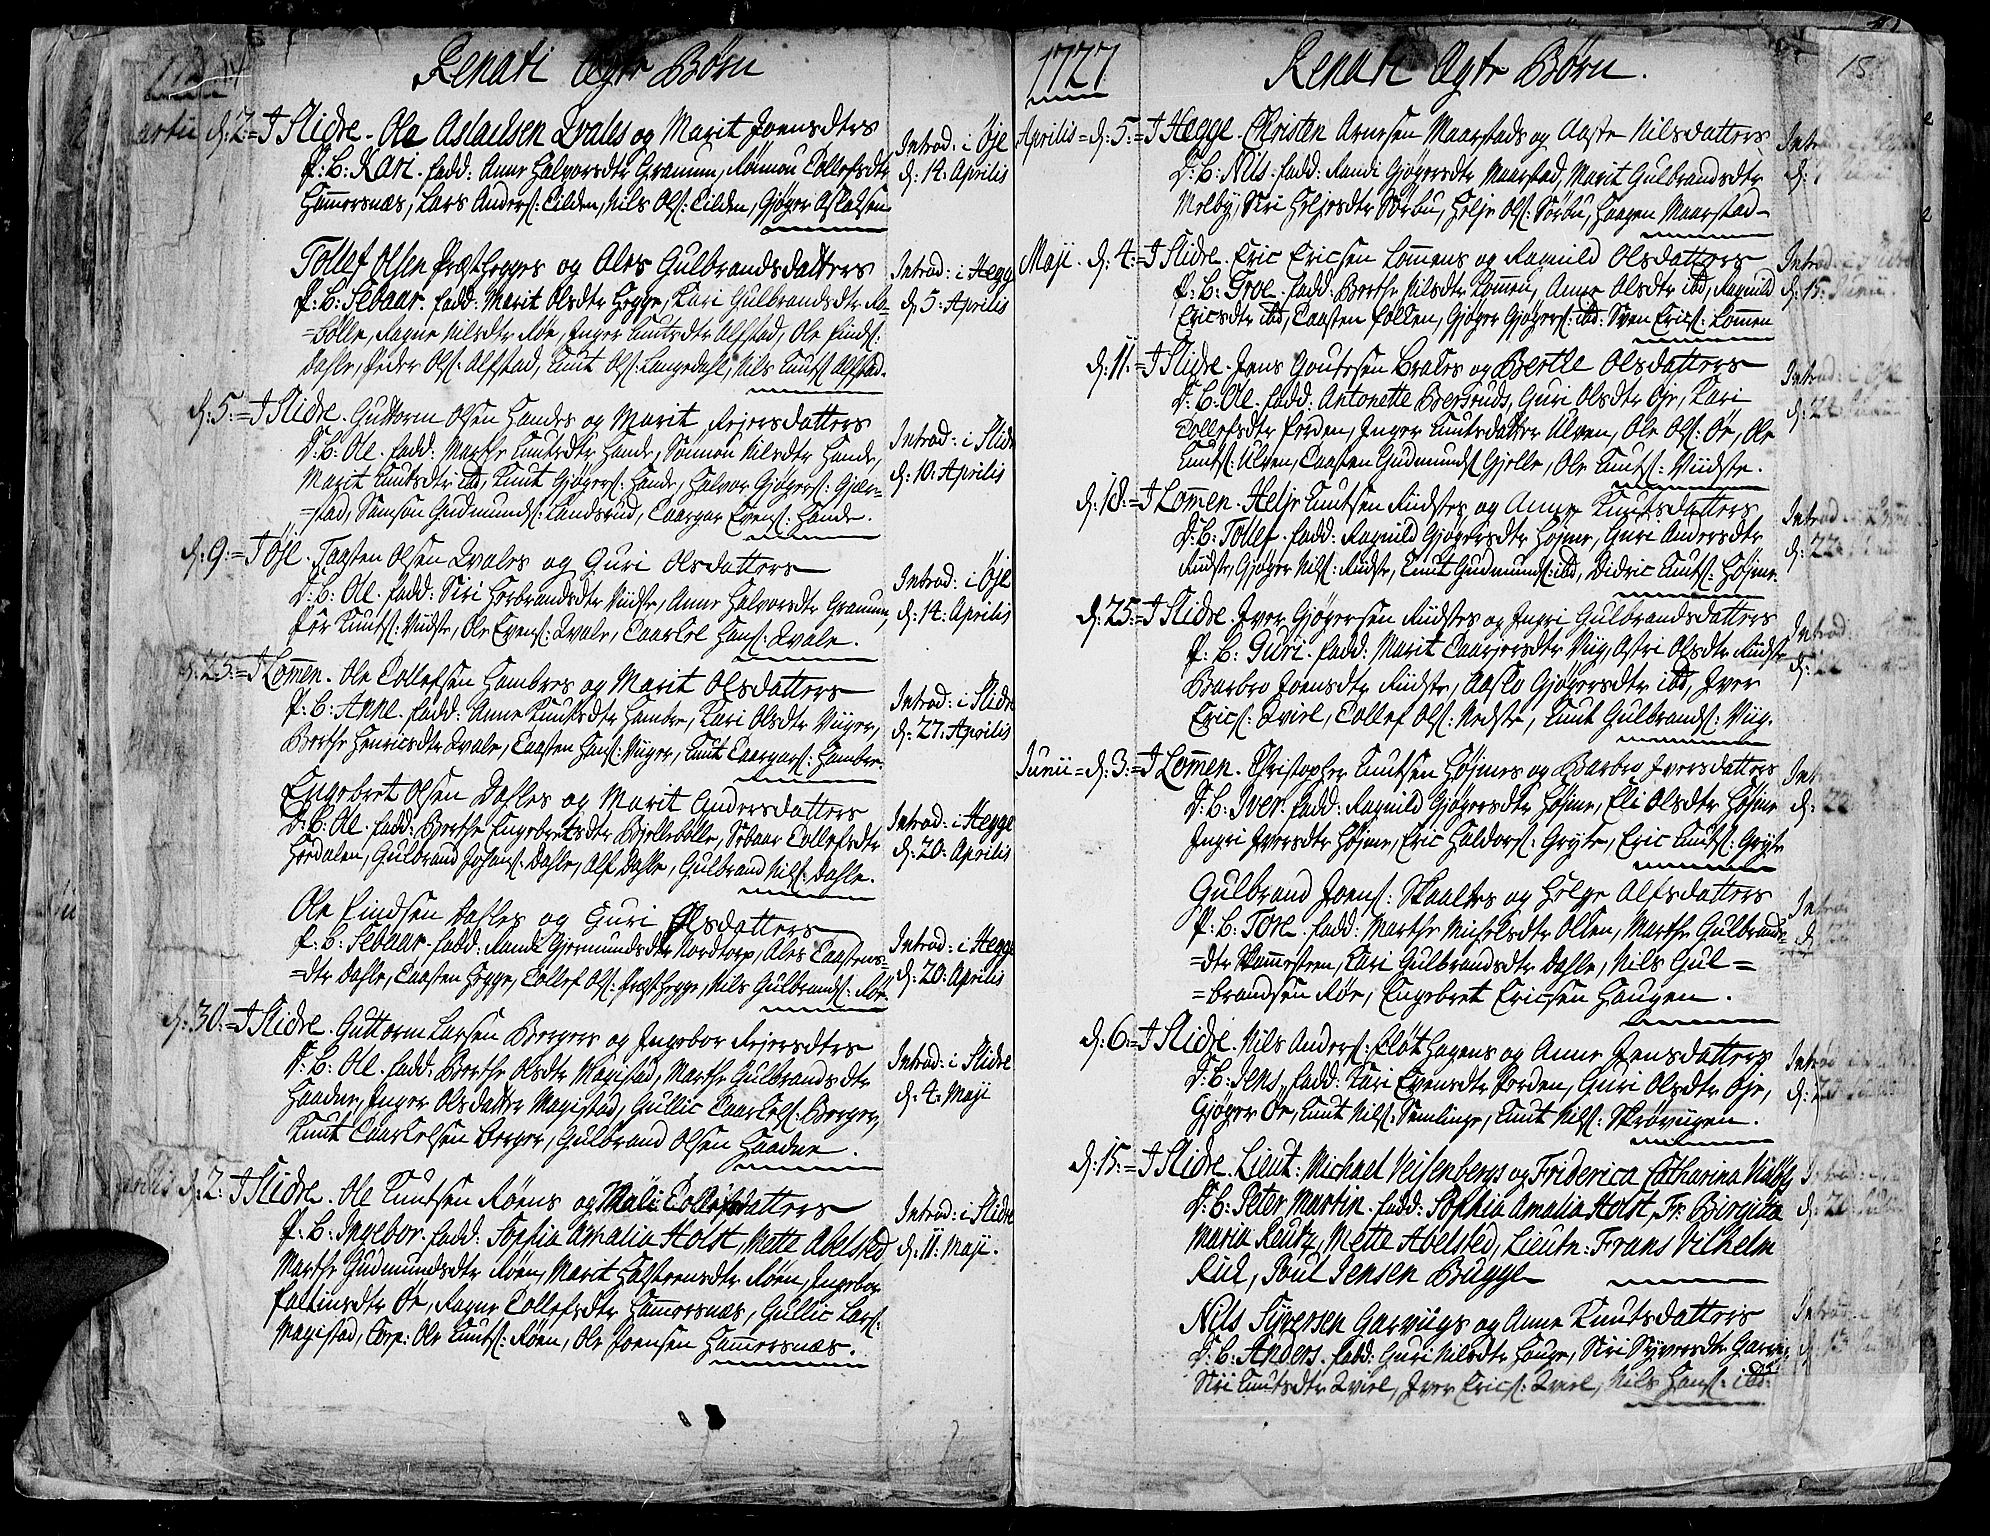 14
Renati Ægte Børn
Martii d: 2: = I Slidre. Ole Aslaelsen Qvales og Marit Joensdters
P: B: Kari. fadd: Anne Halvorsdtr Gramum, Rønnou Tollefsdtr
Hamersnæs, Lars Anders: Eilden, Nils Ols: Eilden, Gjøger Aslaksen
Introd: i Øje
d: 14. Aprilis
Tollef Olsen Præsthegges og Ales Gulbrandsdatters
P: B: Sebaar. fadd: Marit Olsdtr Hegge, Kari Gulbrandsdtr Ra-
=bølle, Ragne Nilsdtr Røe, Inger Knutsdtr Alfstad, Ole Finds:
Dahle, Peder Ols: Alfstad, Knut Ols: Langedahl, Nils Knuts: Alfstad.
Introd: i Hegge
d: 5: Aprilis
d: 5: = I Slidre. Guttorm Olsen Handes og Marit Reiersdatters
D: B: Ole. fadd: Marthe Knutsdtr Hande, Sønnou Nilsdtr Hande,
Marit Knutsdtr ibd, Knut Gjøgers: Hande, Halvor Gjøgers: Gjær-
=stad, Samson Gudmunds: Landsrud, Taargar Evens: Hande.
Introd: i Slidre
d: 10: Aprilis
d: 9: = I Øje. Taasten Olsen Qvales og Guri Olsdatters
D: B: Ole. fadd: Siri Herbrandsdtr Viidste, Anne Halvorsdtr Gramum,
Per Knuts: Viidste, Ole Evens: Qvale, Taarkel Hans: Qvale.
Introd: i Øje
d: 14: Aprilis
d: 25: = I Lomen. Ole Tollefsen Hambres og Marit Olsdatters
P: B: Anne. fadd: Anne Knutsdtr Hambre, Kari Olsdtr Viiger,
Berthe Henricsdtr Qvale, Taasten Hans: Viiger, Knut Taargars: Hambre.
Introd: i Slidre
d: 27: Aprilis
Engebret Olsen Dahles og Marit Andersdatters
D: B: Ole. fadd: Berthe Engebretsdtr Bjellebølle, Sebaar Tollefsdtr
Hordalen, Gulbrand Johans: Dahle, Alf Dahle, Gulbrand Nils: Dahle.
Introd: i Hegge
d: 20: Aprilis
Ole Findsen Dahles og Guri Olsdatters
P: B: Sebaar. fadd: Randi Gjermundsdtr Nordtorp, Ales Taastens-
=dtr Dahle, Taasten Hegge, Tollef Ols: Præsthegge, Nils Gulbrands: Røe.
Introd: i Hegge
d: 20: Aprilis
d: 30: = I Slidre. Guttorm Larsen Bergers og Ingebor Reiersdtrs
D: B: Ole. fadd: Berthe Olsdtr Magistad, Marthe Gulbrandsdtr
Haadne, Inger Olsdatter Magistad, Gullic Taarkels: Berger,
Knut Taarkelsen Berger, Gulbrand Olsen Haadne.
Introd: i Slidre
d: 4: Maji
Aprilis d: 2: I Slidre. Ole Knutsen Røens og Mali Tollefsdatters
P: B: Ingebor. fadd: Sophia Amalia Holst, Mette Abelsted
Marthe Gudmundsdtr Røen, Marit Halsteensdtr Røen, Ingebor
Paltinsdtr Øe, Ragne Tollefsdtr Hamersnæs, Gullic Lars:
Magistad, Corp: Ole Knuts: Røen, Ole Joensen Hamersnæs.
Introd: i Slidre
d: 11: Maji.
1727
Renati Ægte Børn.
15
Aprilis = d: 5: = I Hegge. Christen Arnesen Maarstads og Aaste Nilsdatters
D: B: Nils. fadd: Randi Gjøgersdtr Maarstad, Marit Gulbrandsdtr
Melby, Siri Heljesdtr Sørbu, Helje Ols: Sørbu, Haagen Maarstad
Maji. d: 4: = I Slidre. Eric Ericsen Lomens og Ragnild Olsdatters
P: B: Groe. fadd: Berthe Nilsdtr Lomen, Anne Olsdtr ibd, Ragnild
Ericsdtr ibd, Taasten Follen, Gjøger Gjøgers: ibd: Sven Erics: Lomen
Introd: i Slidre
d: 15: Junii.
d: 11: = I Slidre. Jens Goutesen Brakes og Berthe Olsdatters
D: B: Ole. fadd: Antonette Bergruds, Guri Olsdtr Øje, Kari
Tollefsdtr Perden, Inger Knutsdatter Ulven, Ole Ols: Øe, Ole
Knuts: Ulven, Taasten Gudmunds: Gjelle, Ole Knuts: Viidste.
Introd: i Øje
d: 18: = I Lomen. Helje Knutsen Riidstes og Anne Knutsdatters
D: B: Tollef. fadd: Ragnild Gjøgersdtr Højme, Guri Andersdtr
Riidste, Gjøger Nils: Riidste, Knut Gudmunds: ibd, Didric Knuts: Højme.
Introd:
d: 22
d: 25: = I Slidre. Iver Gjøgersen Riidstes og Ingri Gulbrandsdatters
P: B: Guri. fadd: Marit Taargersdtr Viig, Astri Olsdtr Riidste
Barbro Joensdtr Riidste, Aaslo Gjøgersdtr ibd, Iver
Erics: Qviel, Tollef Ols: Nedste, Knut Gulbrands: Viig.
Introd:
d: 22
Junii = d: 3: = I Lomen. Christopher Knutsen Højmes og Barbro Iversdatters
D: B: Iver. fadd: Ragnild Gjøgersdtr Højme, Eli Olsdtr Højme
Ingri Iversdtr Højme, Eric Haldors: Gryte, Eric Knuts: Gryte
Int
d: 22
Gulbrand Joens: Skaaltes og Helge Alfsdatters
P: B: Tore. fadd: Marthe Michelsdtr Olken, Marthe Gulbrands-
=dtr Skamesteen, Kari Gulbrandsdtr Dahle, Nils Gul=
=brandsen Røe, Engebret Ericsen Haugen.
d: 6: = I Slidre. Nils Anders: Fløthagens og Anne Jensdatters
D: B: Jens. fadd: Kari Evensdtr Perden, Guri Olsdtr Øje,
Gjøger Øe, Knut Nils: Semlinge, Knut Nils: Skrøvigen.
Introd:
d: 15: = I Slidre. Lieut: Michael Veisenbergs og Friderica Catharina
D: B: Peter Martin. fadd: Sophia Amalia Holst, Fr: Birgitta
Maria Reutz, Mette Abelsted, Lieutn: Frans Vilhelm
Rue, Poul Jensen Bugge
Nils Syversen Garviigs og Anne Knutsdatters
D: B: Anders. fadd: Guri Nilsdtr Hauge, Siri Syversdtr Garvig,
Siri Knutsdtr Qviel, Iver Erics: Qviel, Nils Hans: ibd: